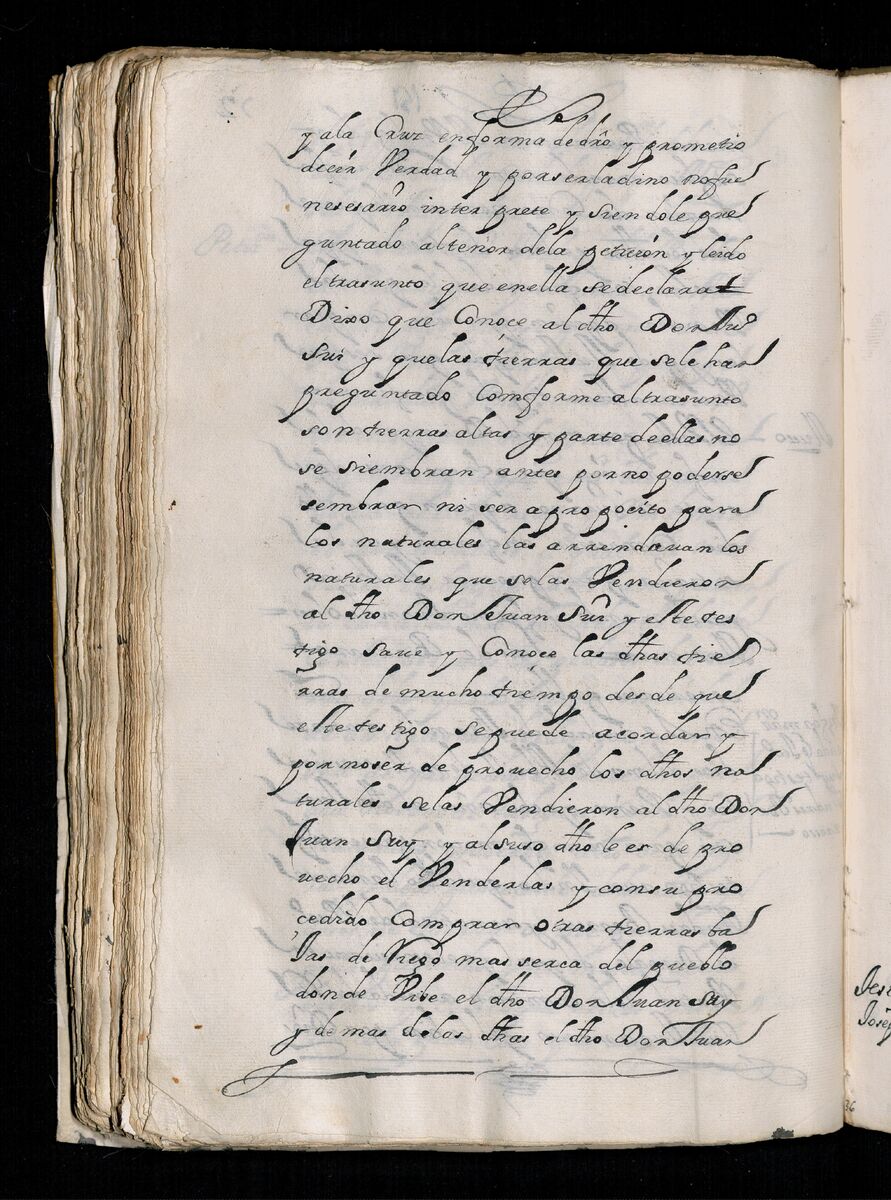 y ala Cruz en forma de dro y prometio
decir Verdad y por ser ladino no fue
nesesario inter prete y siendole pre
guntado al tenor dela peticion y leido
el trasunto que enella se declara
Dixo que Conoce al dho Don Juº
Sui y que las tierras que se le han
preguntado Comforme al trasunto
son tierras altas y parte de ellas no
se siembran antes por no poderse
sembrar ni ser apropocito para
los naturales las arrendauan los
naturales que se las Vendieron
al dho Don Juan Sui y este tes
tigo saue y Conoce las dhas tie
rras de mucho tiempo desde que
este testigo se puede acordar y
por no ser de prouecho los dhos na
turales se las Vendieron al dho Don
Juan Suy y al suso dho le es de pro
uecho el Venderlas y con su pro
cedido Comprar otras tierras ba
Jas de Riego mas serca del pueblo
donde Vibe el dho Don Juan Suy
y demas de las dhas el dho Don Juan
36